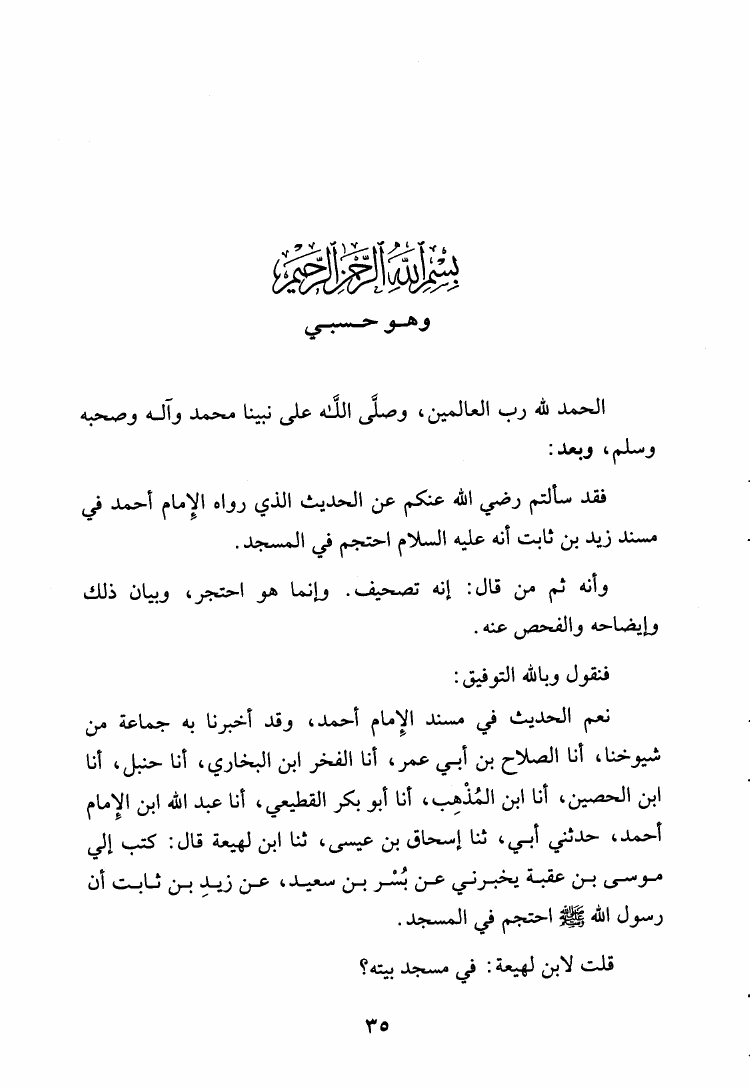 بِسْمِ ٱللَّهِ ٱلرَّحْمَٰنِ ٱلرَّحِيمِ
وهو حسبي
الحمد لله رب العالمين، وصلَّى اللَّه على نبينا محمد وآله وصحبه
وسلم، وبعد:
فقد سألتم رضي الله عنكم عن الحديث الذي رواه الإمام أحمد في
مسند زيد بن ثابت أنه عليه السلام احتجم في المسجد.
وأنه ثم من قال: إنه تصحيف. وإنما هو احتجر، وبيان ذلك
وإيضاحه والفحص عنه.
فنقول وبالله التوفيق:
نعم الحديث في مسند الإمام أحمد، وقد أخبرنا به جماعة من
شيوخنا، أنا الصلاح بن أبي عمر، أنا الفخر ابن البخاري، أنا حنبل، أنا
ابن الحصين، أنا ابن المُذْهِب، أنا أبو بكر القطيعي، أنا عبد الله ابن الإمام
أحمد، حدثني أبي، ثنا إسحاق بن عيسى، ثنا ابن لهيعة قال: كتب إلي
موسى بن عقبة يخبرني عن بُسْر بن سعيد، عن زيدِ بن ثابت أن
رسول الله ﷺ احتجم في المسجد.
قلت لابن لهيعة: في مسجد بيته؟
٣٥